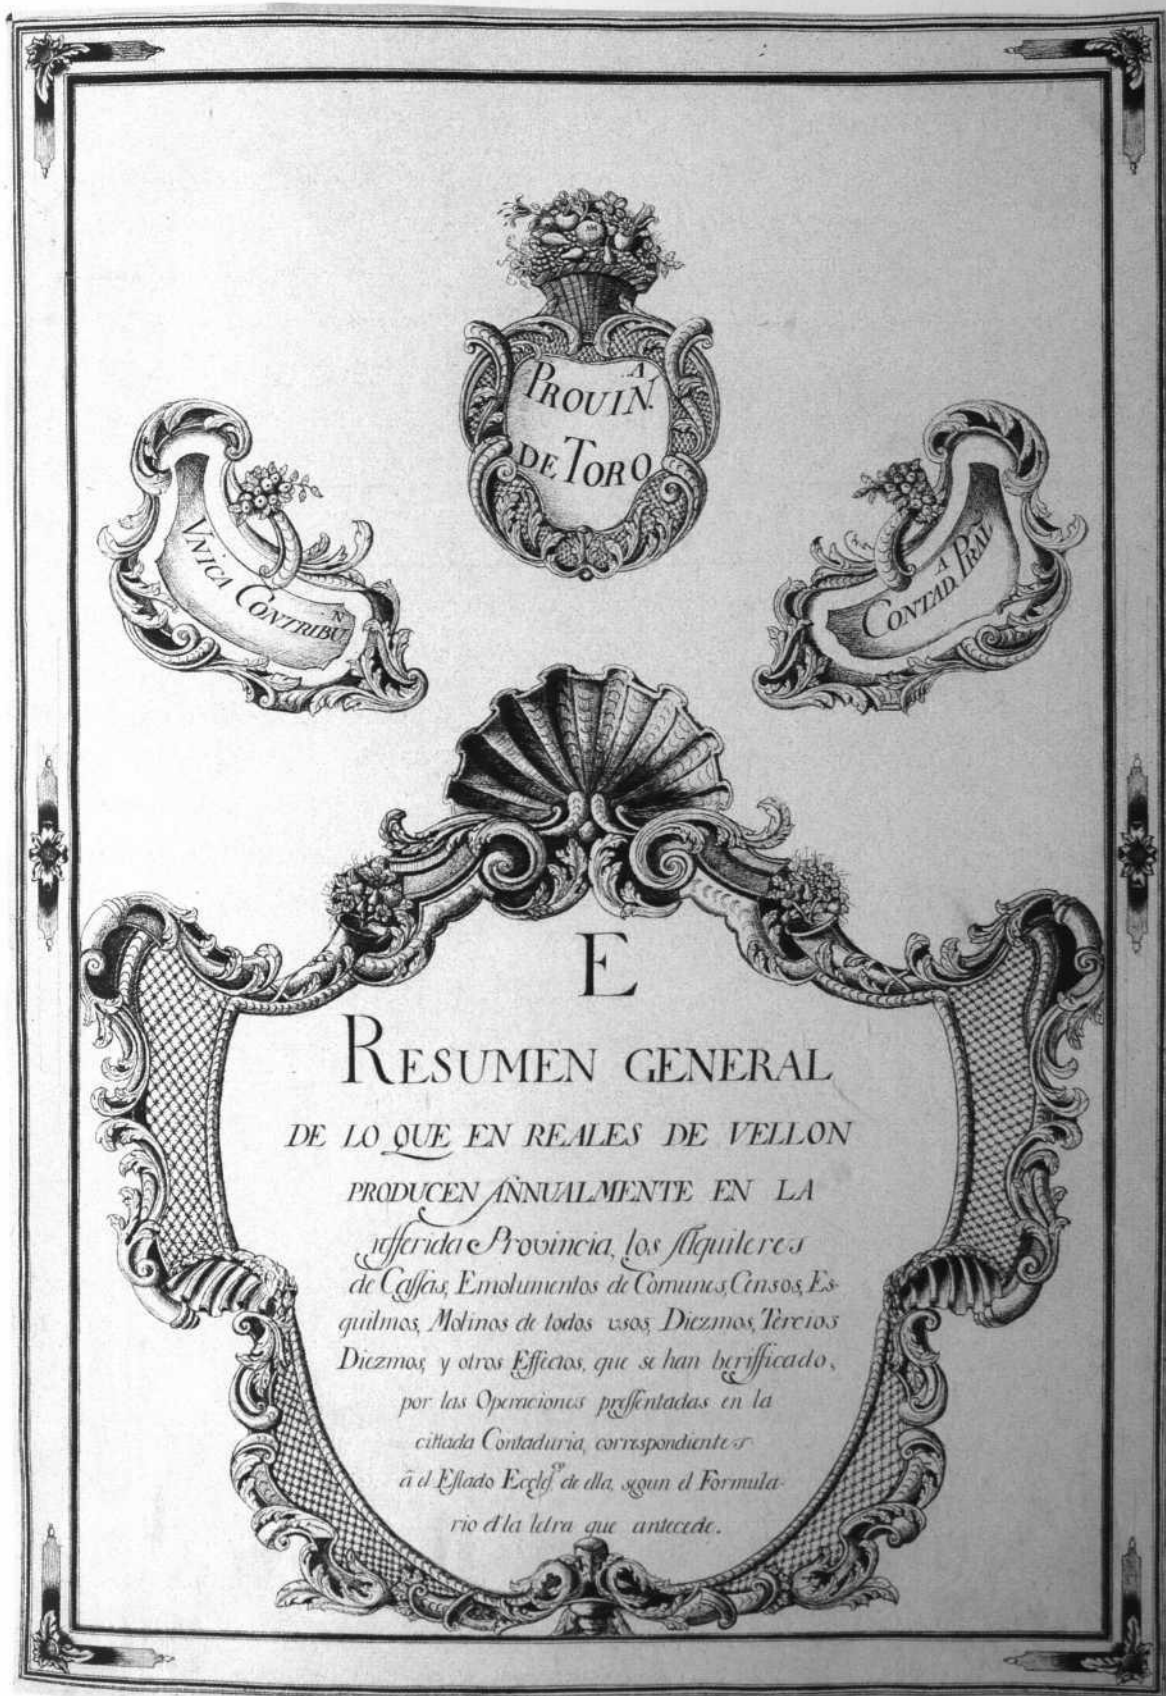 PROUIN.A
DE TORO
VNICA CONTRIBU.N
CONTAD.A PRAL
E
RESUMEN GENERAL
DE LO QUE EN REALES DE VELLON
PRODUCEN AÑNUALMENTE EN LA
referida Provincia, los Alquileres
de Cassas, Emolumentos de Comunes, Censos, Es-
quilmos, Molinos de todos usos, Diezmos, Tercios
Diezmos, y otros Effectos, que se han berifficado,
por las Operaciones pressentadas en la
cittada Contaduria, correspondientes
â el Estado Eccles.co de ella, segun el Formula-
rio d la letra que antecede.